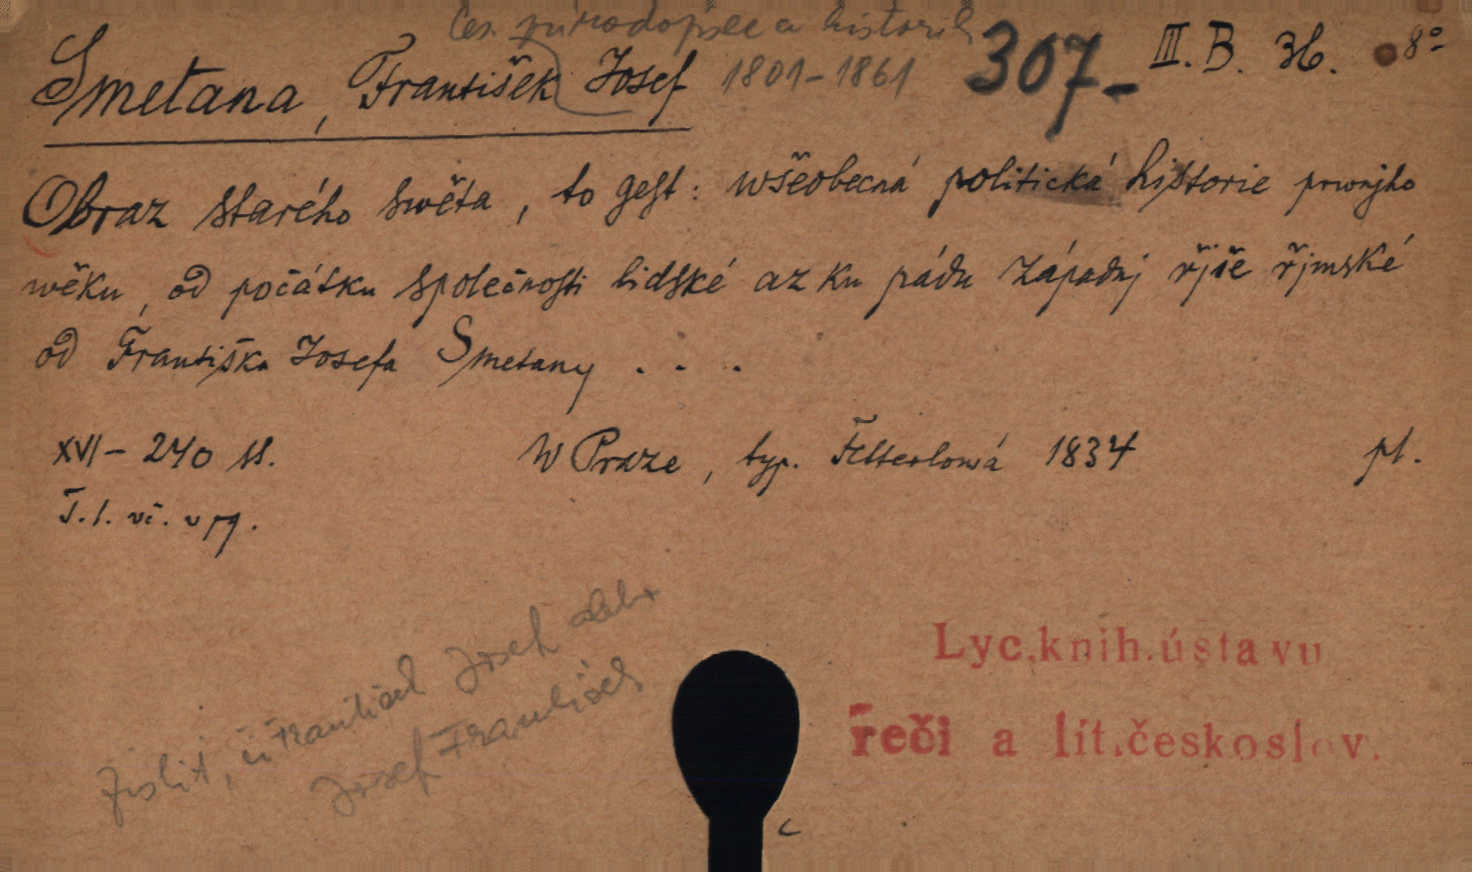 čes. přírodopisec a historik
Smetana, František Josef 1801-1861 307- III. B. 36. 8°
Obraz starého swěta, to gest: wšeobecná politická historie prwnjho
wěku, od počátku společnosti lidské až ku pádu západnj řjše řjmské
od Františka Josefa Smetany . . .
XVI - 240 ss. W Praze, typ. Fetterlowá 1834 pt.
T. l. vč. v pg.
Zjistit, František Josef
Josef František
Lyc. knih. ústavu
řeči a lit. českoslov.
c